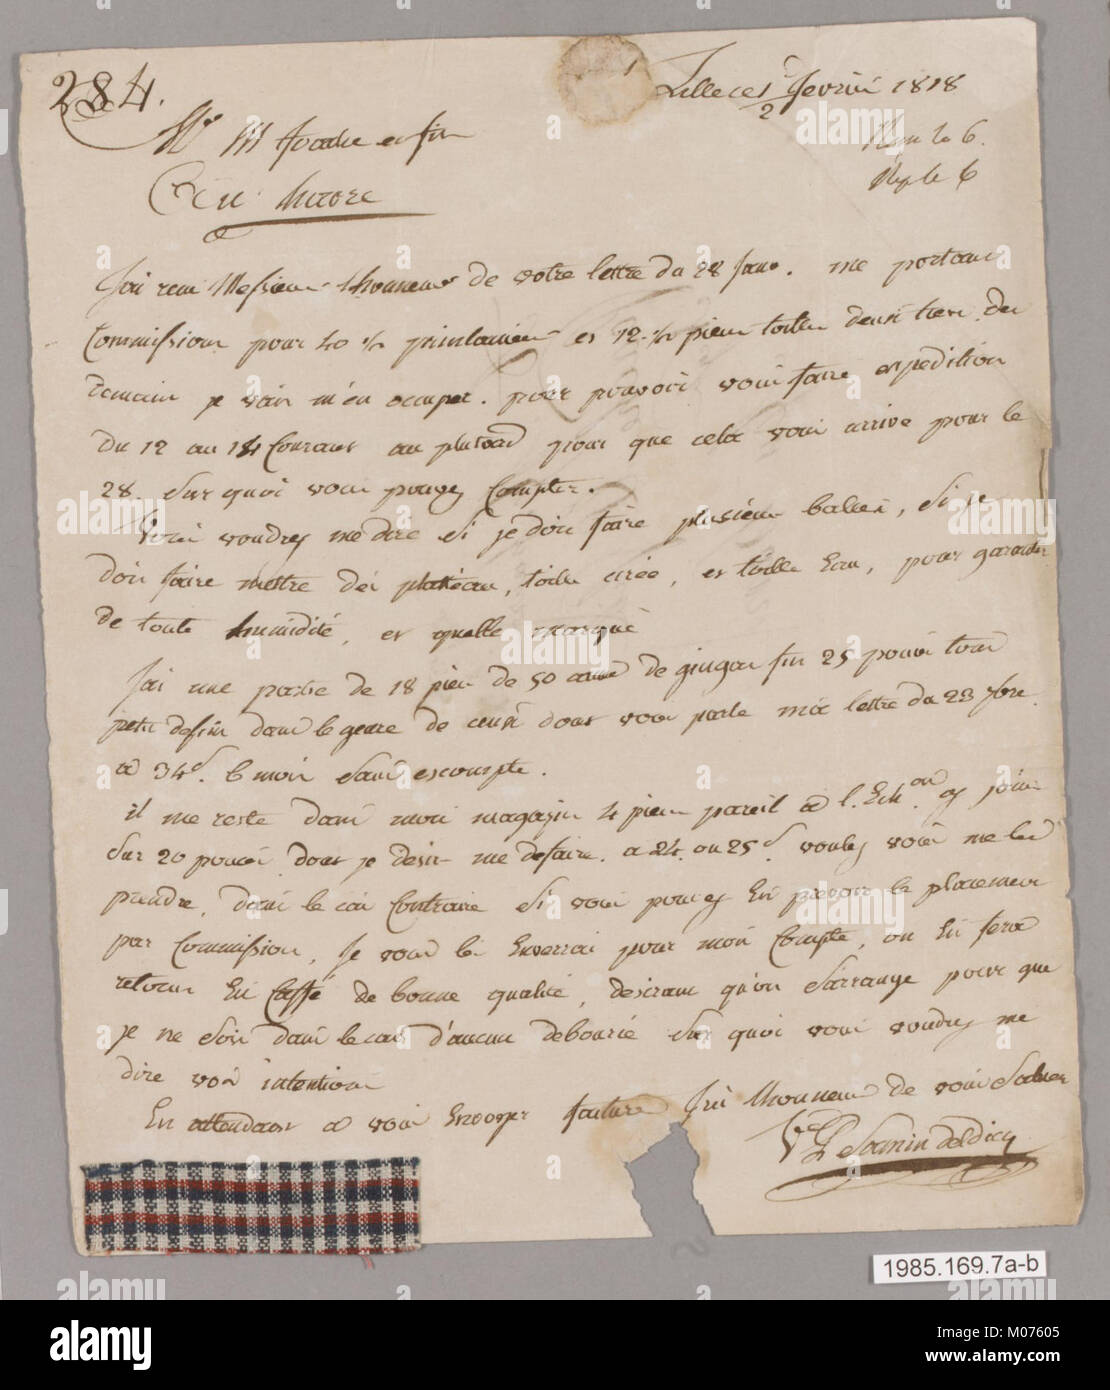 284.
Lille ce 1 fevrier 1818
2
Mr
fils
Rep le 6
Jai recu Messieurs Lhonneur de votre lettre du 28 Janv. me portant
Commission pour 40 printanieres et 12 pieces toiles deux tiers. Des
demain je vais m'en occuper. pour pouvoir vous faire expedition
du 12 au 14 Courant au plutard pour que cela vous arrive pour le
28. Sur quoi vous pouvez Compter.
Vous voudrez me dire si je dois faire plusieurs balles, si je
dois faire mettre des plateau, toile cirée, et toille Eau, pour garantir
de toute humidité, et quelle marque
Jai une partie de 18 pieces de 50 aunes de gingan fin 25 pouces tous
petit dessin dans le genre de ceux dont vous parle ma lettre du 23 xbre
a 34s. 6 mois sans escompte.
il me reste dans mon magazin 4 pieces pareil a l'Ech.on cy joint
sur 20 pouces dont je desire me defaire. a 24 ou 25s. voulez vous me les
prendre, dans le cas Contraire si vous pouvez En prevoir le placement
par Commission, Je vous les Enverrai pour mon Compte, on En fera
retour En Caffé de bonne qualité, desirant qu'on s'arrange pour que
je ne sois dans le cas d'aucun debourcé sur quoi vous voudrez me
dire vos intentions
En attendant a vous Envoyer facture Jai Lhonneur de vous Saluer
1985.169.7a-b
alamy
Image ID: M07605
www.alamy.com